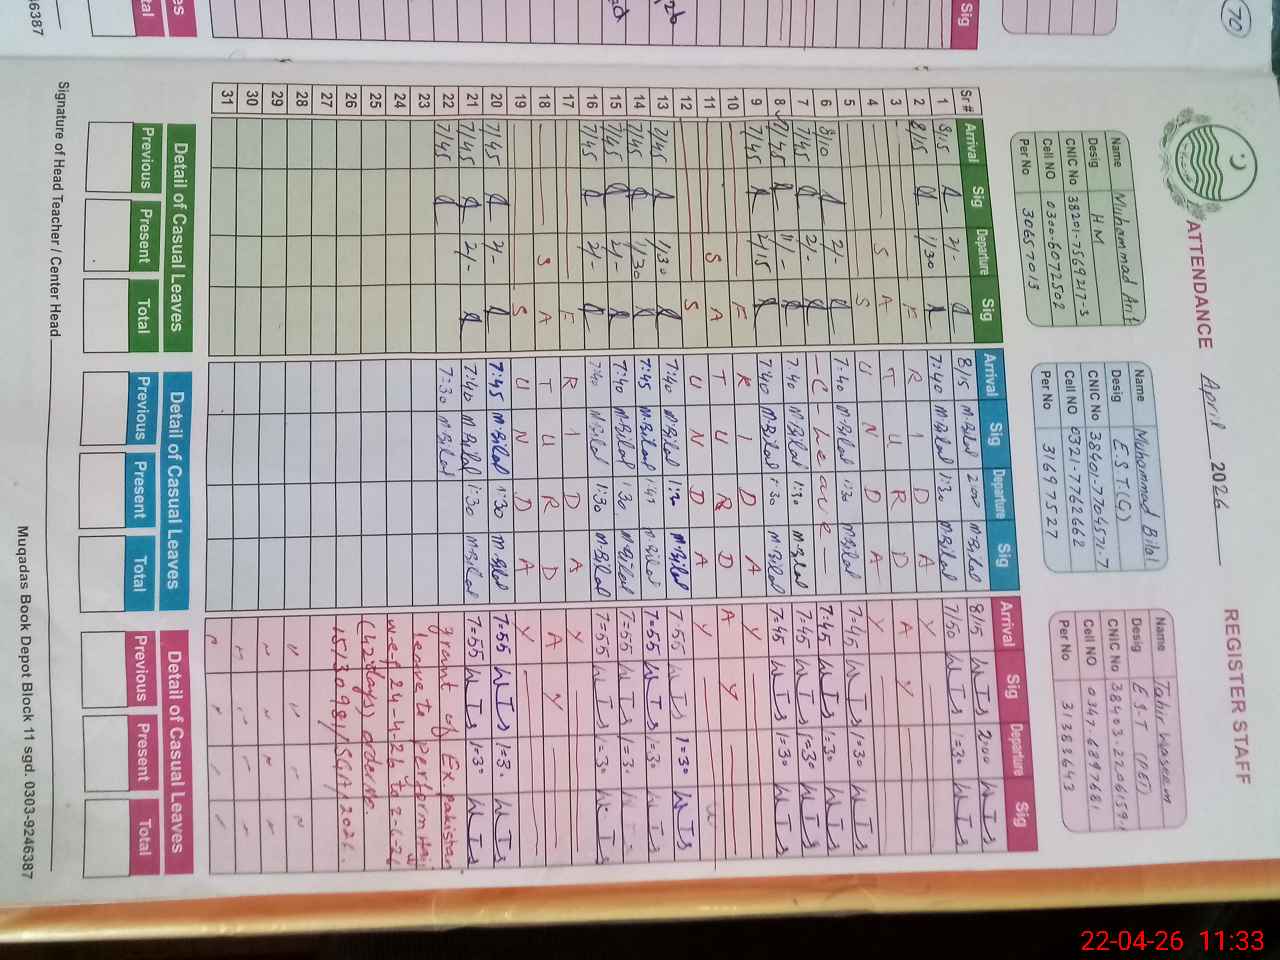 70
Sig
ATTENDANCE April 2026 REGISTER STAFF
Name Muhammad Arif
Desig HM
CNIC No 38201-7569217-3
Cell NO 0300-6072502
Per No 30657013
Name Muhammad Bilal
Desig E.S.T(G)
CNIC No 38401-7704571-7
Cell NO 0321-7762662
Per No 31697527
Name Tahir Waseem
Desig E.S.T (PET)
CNIC No 38403-2206159-
Cell NO 0347-6997681
Per No 31388643
Sr# Arrival Sig Departure Sig Arrival Sig Departure Sig Arrival Sig Departure Sig
1 8/15 2/- 8/15 M.Bilal 2:00 M.Bilal 8/15 2:00
2 8/15 1/30 7:40 M.Bilal 1:30 M.Bilal 7/50 1:30
3 F R I D A Y
4 S A T U R D A Y
5 S U N D A Y
6 8/10 2/- 7:40 M.Bilal 1:30 M.Bilal 7=45 1=30
7 7/45 2/- 7=45 1=30
8 7/45 7:40 M.Bilal 1:30 M.Bilal 7=45 1=30
9 7/45 2/15 7:40 M.Bilal 1:30 M.Bilal 7=45 1=30
10 F R I D A Y
11 S A T U R D A Y
12 S U N D A Y
13 7/45 1/30 7:40 M.Bilal M.Bilal 7:55 1=30
14 7/45 1/30 7:45 M.Bilal M.Bilal 7=55 1=30
15 7/45 2/- 7:40 M.Bilal 1:30 M.Bilal 7=55
16 7/45 2/- 7:40 M.Bilal 1:30 M.Bilal 7=55 1=30
17 F R I D A Y
18 S A T U R D A Y
19 S U N D A Y
20 7/45 2/- 7:45 M.Bilal 1:30 M.Bilal 7=55
21 7/45 2/- 7:40 M.Bilal 1:30 M.Bilal 7=55 1=30
22 7/45 7:30 M.Bilal grant of Ex. pakistan
23 leave to perform Hajj
24 w.e.f 24-4-26 to 2-6-26
25 (42 days) order No.
26
27
28
29
30
31
Detail of Casual Leaves Detail of Casual Leaves Detail of Casual Leaves
Previous Present Total Previous Present Total Previous Present Total
Signature of Head Teacher / Center Head
Muqadas Book Depot Block 11 sgd. 0303-9246387
22-04-26 11:33